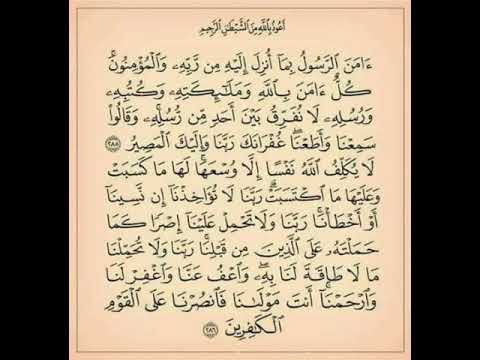 أَعُوذُ بِٱللَّهِ مِنَ ٱلشَّيْطَٰنِ ٱلرَّجِيمِ
ءَامَنَ ٱلرَّسُولُ بِمَآ أُنزِلَ إِلَيْهِ مِن رَّبِّهِۦ وَٱلْمُؤْمِنُونَۚ
كُلٌّ ءَامَنَ بِٱللَّهِ وَمَلَٰٓئِكَتِهِۦ وَكُتُبِهِۦ
وَرُسُلِهِۦ لَا نُفَرِّقُ بَيْنَ أَحَدٍ مِّن رُّسُلِهِۦۚ وَقَالُوا۟
سَمِعْنَا وَأَطَعْنَاۖ غُفْرَانَكَ رَبَّنَا وَإِلَيْكَ ٱلْمَصِيرُ ٢٨٥
لَا يُكَلِّفُ ٱللَّهُ نَفْسًا إِلَّا وُسْعَهَاۚ لَهَا مَا كَسَبَتْ
وَعَلَيْهَا مَا ٱكْتَسَبَتْۗ رَبَّنَا لَا تُؤَاخِذْنَآ إِن نَّسِينَآ
أَوْ أَخْطَأْنَاۚ رَبَّنَا وَلَا تَحْمِلْ عَلَيْنَآ إِصْرًا كَمَا
حَمَلْتَهُۥ عَلَى ٱلَّذِينَ مِن قَبْلِنَاۚ رَبَّنَا وَلَا تُحَمِّلْنَا
مَا لَا طَاقَةَ لَنَا بِهِۦۖ وَٱعْفُ عَنَّا وَٱغْفِرْ لَنَا
وَٱرْحَمْنَآۚ أَنتَ مَوْلَىٰنَا فَٱنصُرْنَا عَلَى ٱلْقَوْمِ
ٱلْكَٰفِرِينَ ٢٨٦